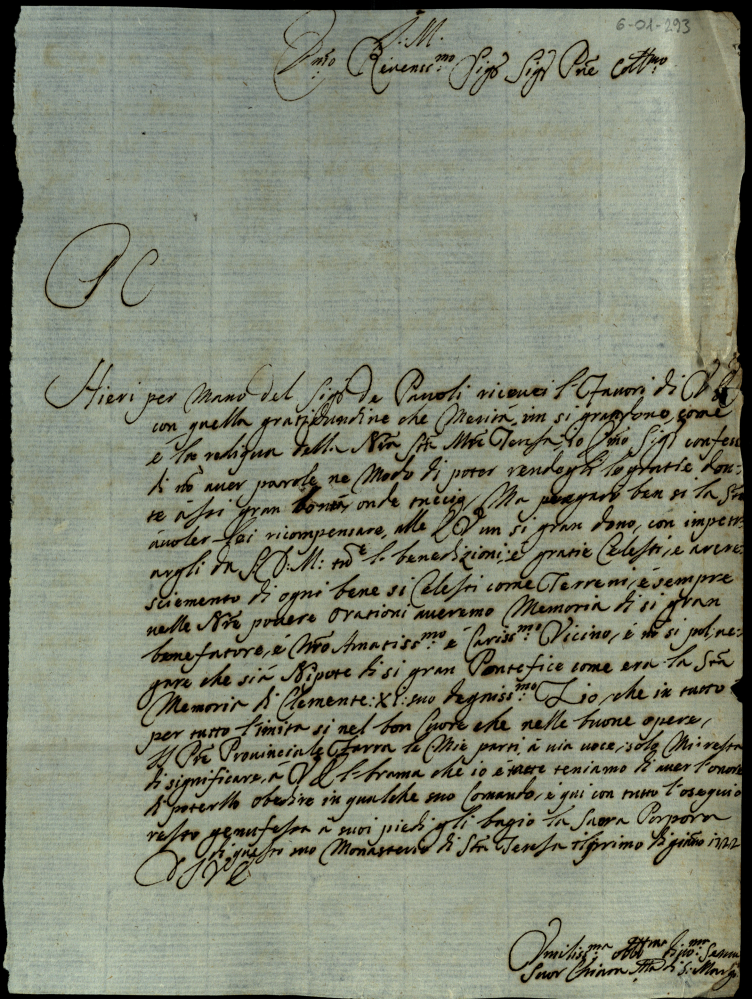 6-01-293
J: M:
Emo Reverenss:mo Sigr Sigr Pne Coll:mo
P C
Hieri per Mano del Sigr de Pauoli riceuei l'Fauori di V E
con quella gratitudine che Merita, un si gran dono come
è la reliqua della Nra Sta Mre Teresa, Io Emo Sigr confesso
di nõ auer parole ne Modo di poter rendergli le gratie
te à si gran bontà onde taccio, Ma pregarò ben si la Sta
à uoler lei ricompensare, alle E V un si gran dono, con impetr
argli da S: D: M: tte l: benedizioni, é gratie Celesti, e acre
sciemento di ogni bene si Celesti come Terreni, é sempre
nelle Nre pouere orationi aueremo Memoria di si gran
benefatore, é Nro Amatiss:mo é Cariss:mo Vicino, é nõ si può ne
gare che sia Nipote di si gran Pontefice come era la Sta
Memoria di Clemente: XI: suo degniss:mo Zio, che in tutto
per tutto l'imita si nel bon Cuore che nelle buone opere,
Il Pre Prouinciale Farra le Mie parti à uiua uoce, solo Mi resta
di significare, à V E l: brama che io é tutte teniamo di auer l'onore
di poterllo obedire in qualche suo Comando, e qui con tutto l'osequio
resto genuflessa à suoi piedi, gli bagio la Sacra Porpora
D S V E di questo suo Monasterio di Sta Teresa il primo di giũo 1722
Vmiliss:ma obb:ma Serua
Suor Chiara Ma di S: